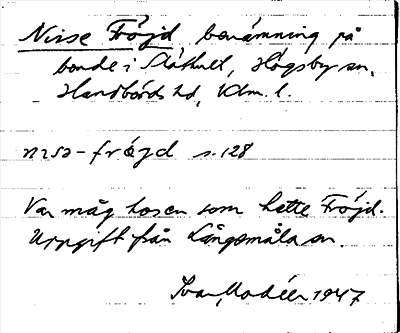 Nisse Fröjd, benämning på
bonde i Slåthult, Högsby sn,
Handbörds hd, Klm. l.
nisə-fröjd s. 128
Var måg hos en som hette Fröjd.
Uppgift från Långemåla sn.
Ivar Modéer 1947